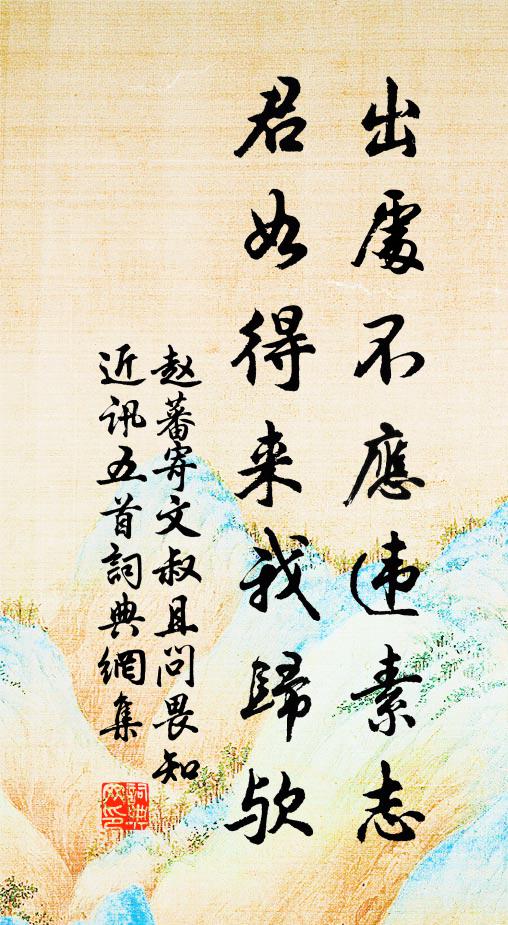 出處不應违素志
君如得来我歸欤
赵蕃寄文叔且问畏知
近讯五首詞典網集